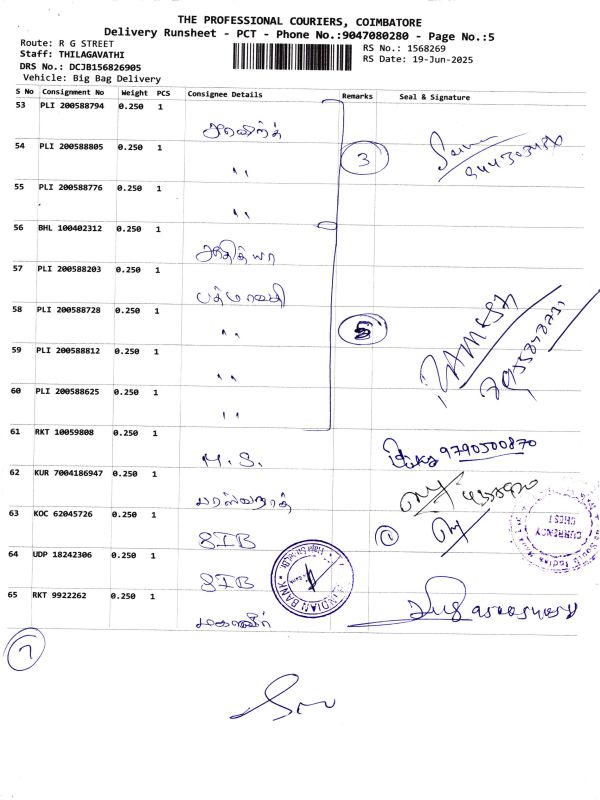 THE PROFESSIONAL COURIERS, COIMBATORE
Delivery Runsheet - PCT - Phone No.:9047080280 - Page No.:5
Route: R G STREET
RS No.: 1568269
Staff: THILAGAVATHI
RS Date: 19-Jun-2025
DRS No.: DCJB156826905
Vehicle: Big Bag Delivery
S No Consignment No Weight PCS Consignee Details Remarks Seal & Signature
53 PLI 200588794 0.250 1
54 PLI 200588805 0.250 1
3
"
55 PLI 200588776 0.250 1
"
56 BHL 100402312 0.250 1
ஆதித்யா
57 PLI 200588203 0.250 1
பத்மாவதி
58 PLI 200588728 0.250 1
" 5 RAMESH
59 PLI 200588812 0.250 1
"
60 PLI 200588625 0.250 1
"
61 RKT 10059808 0.250 1
M.S. 9790500870
62 KUR 7004186947 0.250 1
63 KOC 62045726 0.250 1
SIB 1
CURRENCY CHEST
64 UDP 18242306 0.250 1
SIB
65 RKT 9922262 0.250 1
மகாவீர்
7